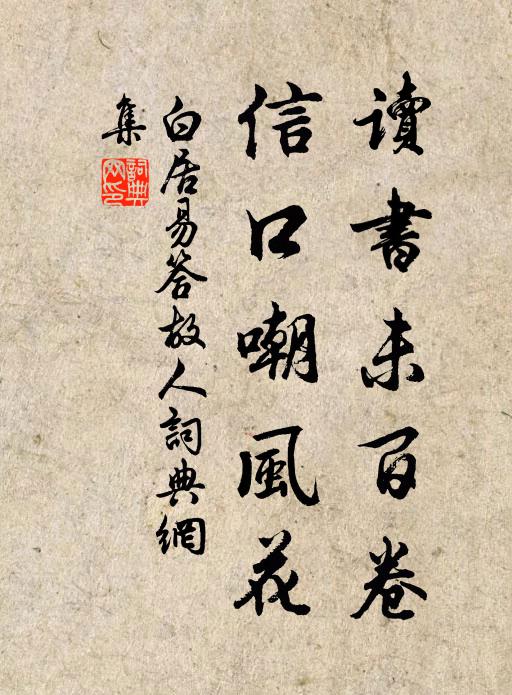 讀書未百卷
信口嘲風花
白居易答故人詞典網
集
詞典網印